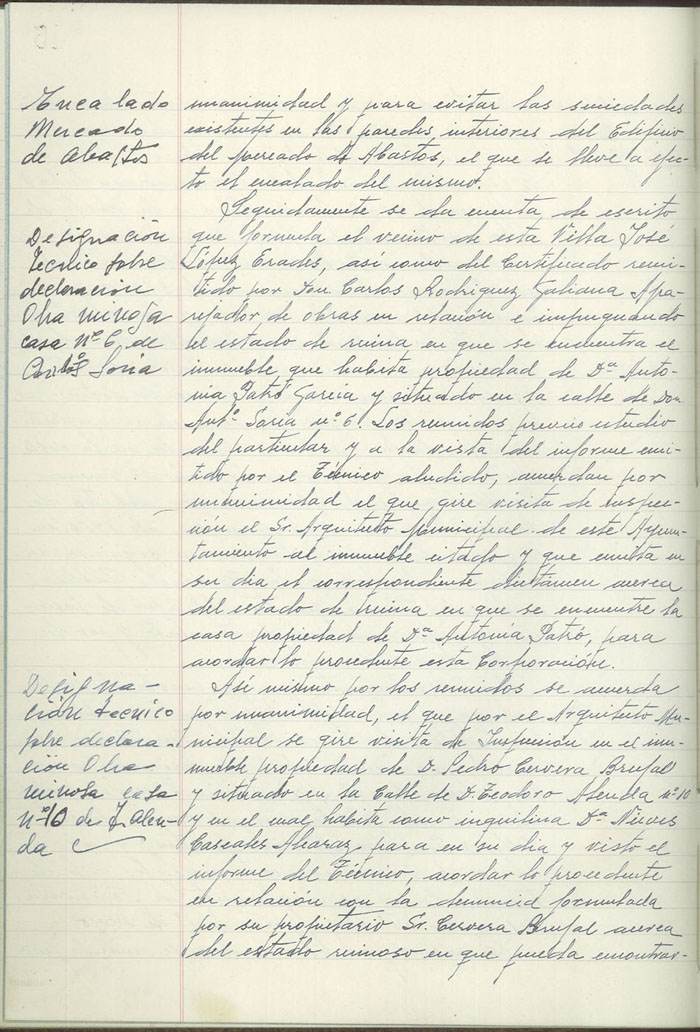 Encalado
Mercado
de Abastos
unanimidad y para evitar las suciedades
existentes en las paredes interiores del Edificio
del Mercado de Abastos, el que se lleve a efec-
to el encalado del mismo.
Designación
Técnico sobre
declaración
Obra ruinosa
casa nº 6, de
Soria
Seguidamente se da cuenta de escrito
que formula el vecino de esta Villa José
López Erades, así como del Certificado remi-
tido por Don Carlos Rodríguez Galiana Apa-
rejador de obras en relación e impugnando
el estado de ruina en que se encuentra el
inmueble que habita propiedad de Dª Anto-
nia Patró García y situado en la calle de Don
Antº Soria nº 6. Los reunidos previo estudio
del particular y a la vista del informe emi-
tido por el Técnico aludido, acuerdan por
unanimidad el que gire visita de inspec-
ción el Sr. Arquitecto Municipal de este Ayun-
tamiento al inmueble citado y que emita en
su dia el correspondiente dictámen acerca
del estado de ruina en que se encuentre la
casa propiedad de Dª Antonia Patró, para
acordar lo procedente esta Corporación.
Designa-
ción tecnico
sobre declara-
ción Obra
ruinosa casa
nº 10 de T. Alen-
da
Así mismo por los reunidos se acuerda
por unanimidad, el que por el Arquitecto Mu-
nicipal se gire visita de Inspección en el inm-
mueble propiedad de D. Pedro Cervera Brufal
y situado en la Calle de D. Teodoro Alenda nº 10
y en el cual habita como inquilina Dª Nieves
Cascales Alcaraz, para en su dia y visto el
informe del Técnico, acordar lo procedente
en relación con la denuncia formulada
por su propietario Sr. Cervera Brufal acerca
del estado ruinoso en que pueda encontrar-